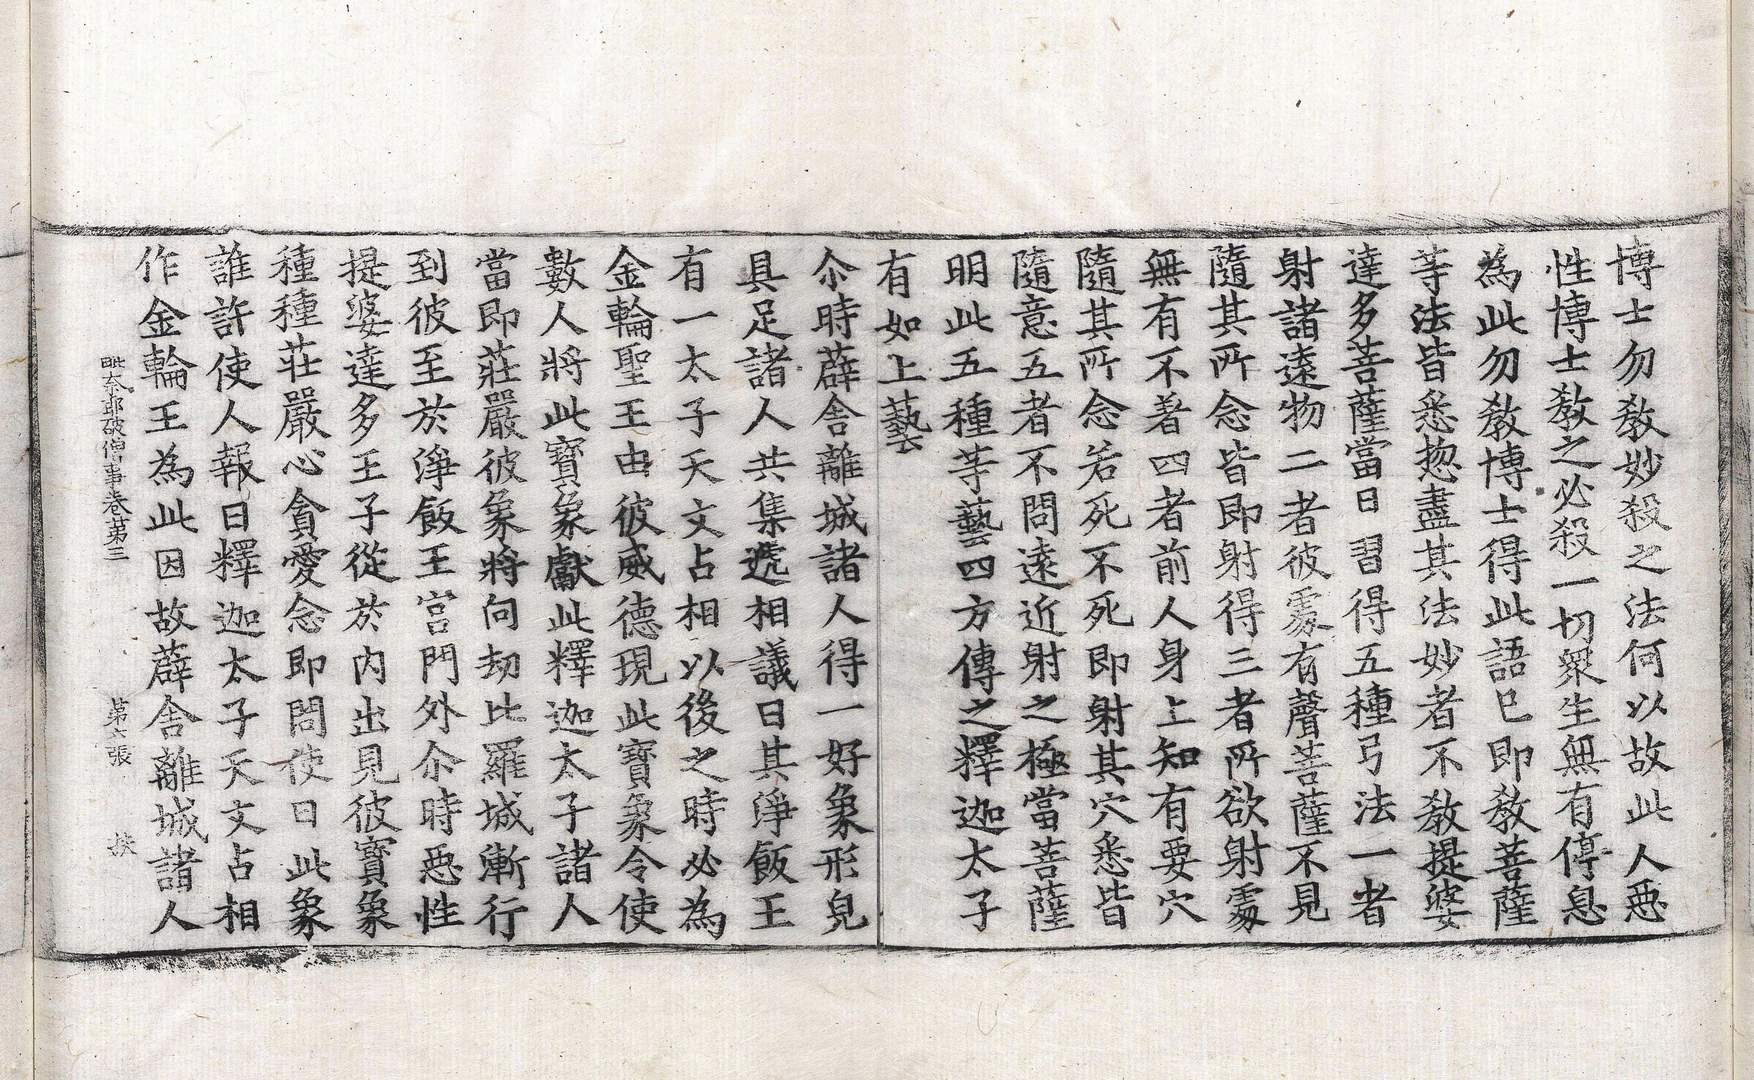 博士勿敎妙殺之法何以故此人惡
性博士敎之必殺一切衆生無有停息
為此勿敎博士得此語已即敎菩薩
等法皆悉揔盡其法妙者不敎提婆
達多菩薩當日習得五種弓法一者
射諸遠物二者彼處有聲菩薩不見
隨其所念皆即射得三者所欲射處
無有不著四者前人身上知有要穴
隨其所念若死不死即射其穴悉皆
隨意五者不問遠近射之極當菩薩
明此五種等藝四方傳之釋迦太子
有如上藝
尒時薜舍離城諸人得一好象形皃
具足諸人共集遞相議曰其淨飯王
有一太子天文占相以後之時必為
金輪聖王由彼威德現此寶象令使
數人將此寶象獻此釋迦太子諸人
當即莊嚴彼象將向劫比羅城漸行
到彼至於淨飯王宮門外尒時惡性
提婆達多王子從於內出見彼寶象
種種莊嚴心貪愛念即問使曰此象
誰許使人報曰釋迦太子天文占相
作金輪王為此因故薜舍離城諸人
毗奈耶破僧事卷第三 第六張 扶